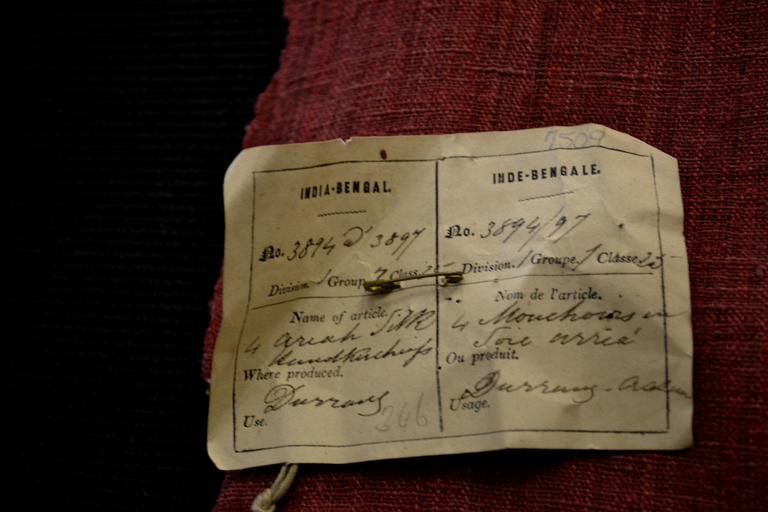 7509
INDIA-BENGAL.
No. 3894 à 3897
Division. 1 Group. 7 Class. 25
Name of article.
4 Ariah Silk
Handkerchiefs
Where produced.
Durrang
Use.
346
INDE-BENGALE.
No. 3894/97
Division. 1 Groupe. 7 Classe 25
Nom de l'article.
4 Mouchoirs en
Soie arria
Ou produit.
Durrang - Assam
Usage.